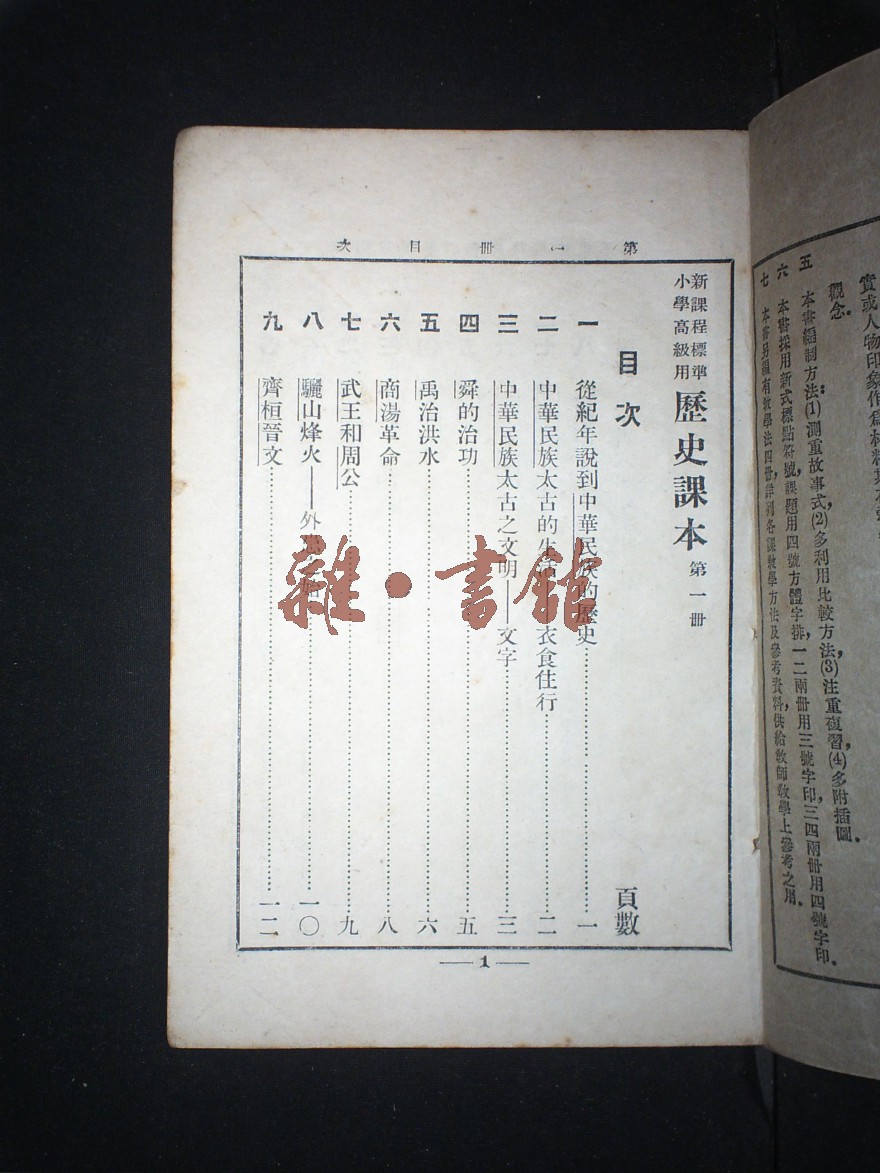 實或人物印象作爲材料
觀念。
五　本書編制方法：(1)測重故事式，(2)多利用比較方法，(3)注重複習，(4)多附插圖。
六　本書採用新式標點符號，課題用四號方體字排，一二兩冊用三號字印，三四兩冊用四號字印。
七　本書另編有教學法四冊，詳列各課教學方法及參考資料，供給教師教學上參考之用。
第一冊目次
新課程標準
小學高級用
歷史課本 第一冊
目次 頁數
一 從紀年說到中華民族的歷史……一
二 中華民族太古的生活——衣食住行……二
三 中華民族太古之文明——文字……三
四 舜的治功……五
五 禹治洪水……六
六 商湯革命……八
七 武王和周公……九
八 驪山烽火——外……一〇
九 齊桓晉文……一二
— 1 —
雜·書館